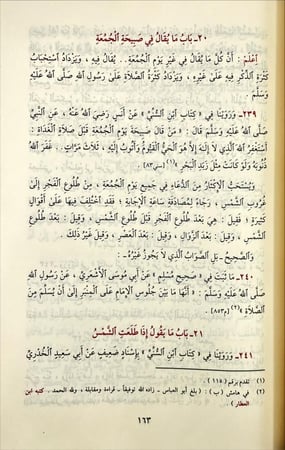 ٢٠ـ بَابُ مَا يُقَالُ فِي صَبِيحَةِ الْجُمُعَةِ
اِعْلَمْ : أَنَّ كُلَّ مَا يُقَالُ فِي غَيْرِ يَوْمِ الْجُمُعَةِ.. يُقَالُ فِيهِ ، وَيَزْدَادُ اسْتِحْبَابُ
كَثْرَةِ الذِّكْرِ فِيهِ عَلَىٰ غَيْرِهِ ، وَيَزْدَادُ كَثْرَةُ الصَّلَاةِ عَلَىٰ رَسُولِ اللهِ صَلَّى اللهُ عَلَيْهِ
وَسَلَّمَ .
٢٣٩ـ وَرَوَيْنَا فِي « كِتَابِ ابْنِ السُّنِّيِّ » عَنْ أَنَسٍ رَضِيَ اللهُ عَنْهُ ، عَنِ النَّبِيِّ
صَلَّى اللهُ عَلَيْهِ وَسَلَّمَ قَالَ : « مَنْ قَالَ صَبِيحَةَ يَوْمِ الْجُمُعَةِ قَبْلَ صَلَاةِ الْغَدَاةِ :
أَسْتَغْفِرُ اللهَ الَّذِي لَا إِلَـٰهَ إِلَّا هُوَ الْحَيَّ الْقَيُّومَ وَأَتُوبُ إِلَيْهِ ، ثَلَاثَ مَرَّاتٍ . غَفَرَ اللهُ
ذُنُوبَهُ وَلَوْ كَانَتْ مِثْلَ زَبَدِ الْبَحْرِ »(١) [سني٨٣] .
وَيُسْتَحَبُّ الْإِكْثَارُ مِنَ الدُّعَاءِ فِي جَمِيعِ يَوْمِ الْجُمُعَةِ ، مِنْ طُلُوعِ الْفَجْرِ إِلَىٰ
غُرُوبِ الشَّمْسِ ، رَجَاءً لِمُصَادَفَةِ سَاعَةِ الْإِجَابَةِ ؛ فَقَدِ اخْتُلِفَ فِيهَا عَلَىٰ أَقْوَالٍ
كَثِيرَةٍ ؛ فَقِيلَ : هِيَ بَعْدَ طُلُوعِ الْفَجْرِ قَبْلَ طُلُوعِ الشَّمْسِ ، وَقِيلَ : بَعْدَ طُلُوعِ
الشَّمْسِ ، وَقِيلَ : بَعْدَ الزَّوَالِ ، وَقِيلَ : بَعْدَ الْعَصْرِ ، وَقِيلَ غَيْرُ ذَلِكَ .
وَالصَّحِيحُ ـ بَلِ الصَّوَابُ الَّذِي لَا يَجُوزُ غَيْرُهُ ـ :
٢٤٠ـ مَا ثَبَتَ فِي « صَحِيحِ مُسْلِمٍ » عَنْ أَبِي مُوسَى الْأَشْعَرِيِّ ، عَنْ رَسُولِ اللهِ
صَلَّى اللهُ عَلَيْهِ وَسَلَّمَ : « أَنَّهَا مَا بَيْنَ جُلُوسِ الْإِمَامِ عَلَى الْمِنْبَرِ إِلَىٰ أَنْ يُسَلِّمَ مِنَ
الصَّلَاةِ »(٢) [م٨٥٣] .
٢١ـ بَابُ مَا يَقُولُ إِذَا طَلَعَتِ الشَّمْسُ
٢٤١ـ وَرَوَيْنَا فِي « كِتَابِ ابْنِ السُّنِّيِّ » بِإِسْنَادٍ ضَعِيفٍ عَنْ أَبِي سَعِيدٍ الْخُدْرِيِّ
(١) تقدم برقم ( ١١٥ ) .
(٢) في هامش ( ب ) : ( بلغ أبو العباس ـ زاده الله توفيقاً ـ قراءة ومقابلة ، ولله الحمد . كتبه ابن
العطار ) .
١٦٣